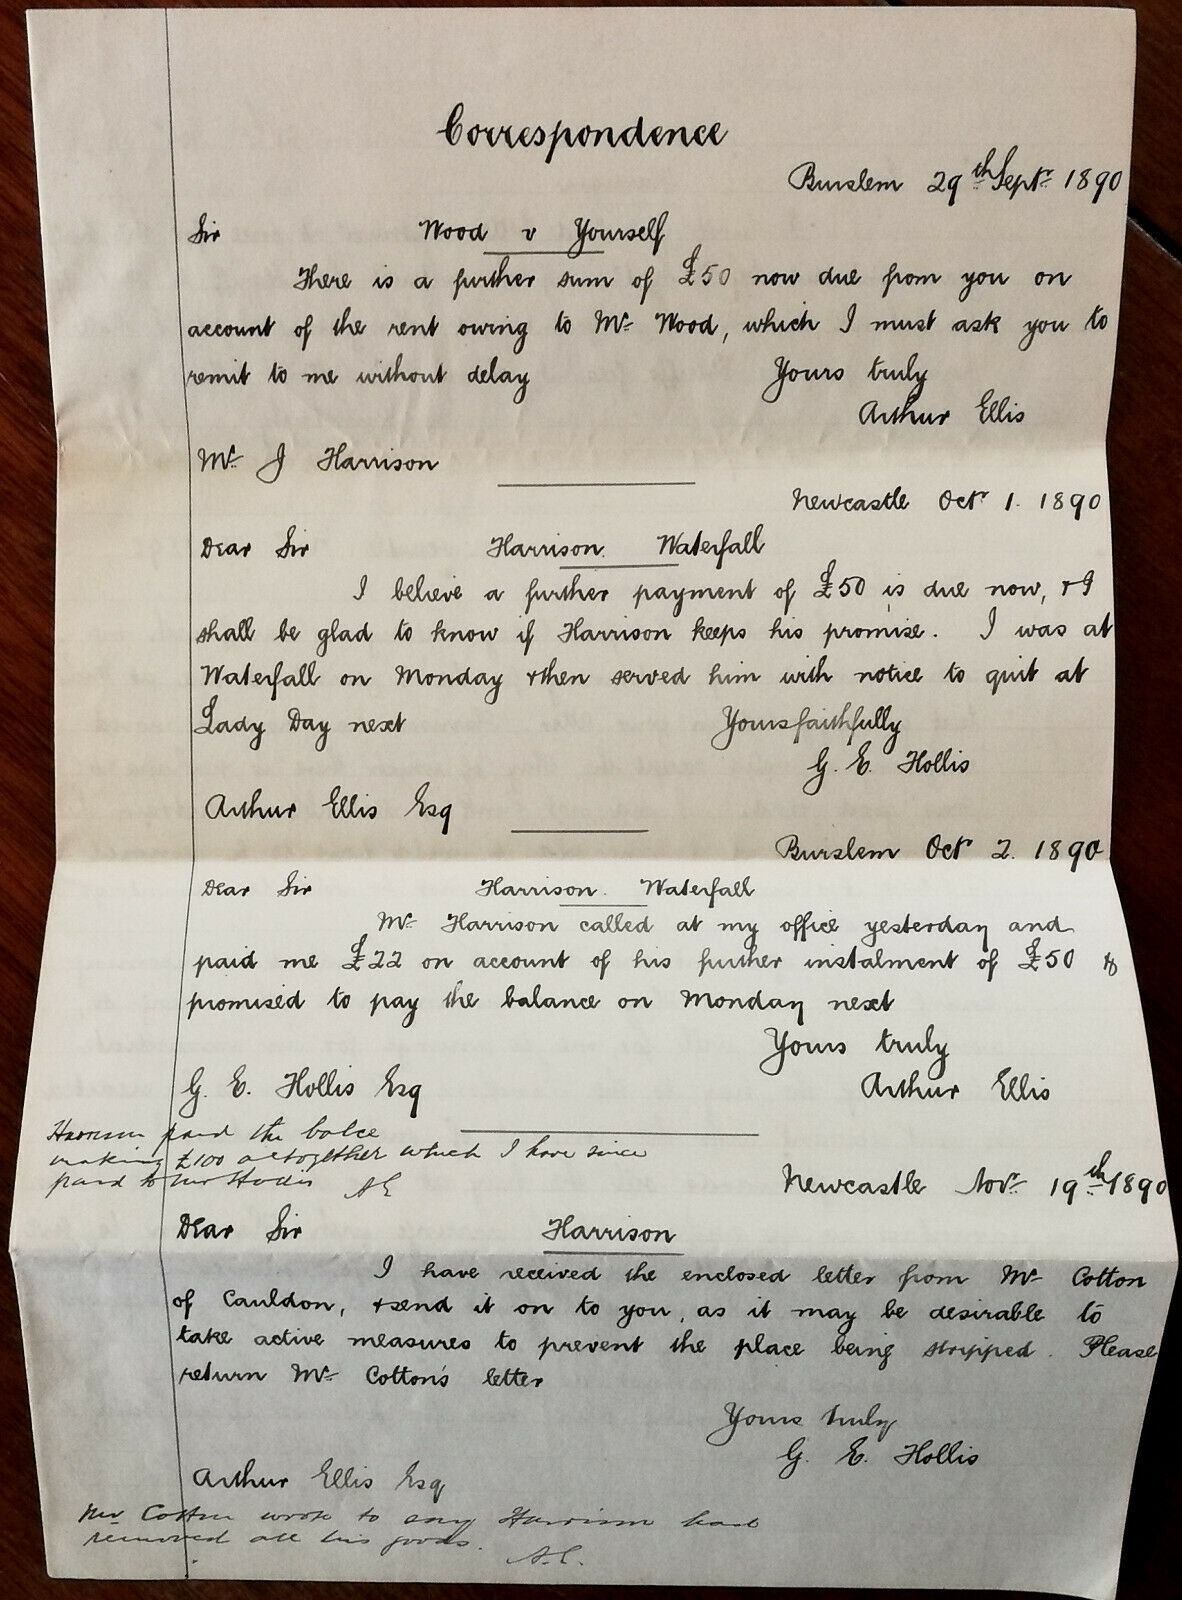 Correspondence
Burslem 29th Septr 1890
Sir Wood v Yourself
There is a further sum of £50 now due from you on
account of the rent owing to Mr Wood, which I must ask you to
remit to me without delay Yours truly
Arthur Ellis
Mr J Harrison
Newcastle Octr 1. 1890
Dear Sir Harrison. Waterfall
I believe a further payment of £50 is due now, & I
shall be glad to know if Harrison keeps his promise. I was at
Waterfall on Monday & then served him with notice to quit at
Lady Day next Yours faithfully
G. E. Hollis
Arthur Ellis Esq
Burslem Octr 2. 1890
Dear Sir Harrison. Waterfall
Mr Harrison called at my office yesterday and
paid me £22 on account of his further instalment of £50 &
promised to pay the balance on Monday next
Yours truly
G. E. Hollis Esq Arthur Ellis
Harrison paid the balce
making £100 altogether which I have since
paid to Mr Hollis AE
Newcastle Novr 19th 1890
Dear Sir Harrison
I have received the enclosed letter from Mr Cotton
of Cauldon, & send it on to you, as it may be desirable to
take active measures to prevent the place being stripped. Please
return Mr Cotton's letter
Yours truly
G. E. Hollis
Arthur Ellis Esq
Mr Cotton wrote to say Harrison had
removed all his goods.
A.E.